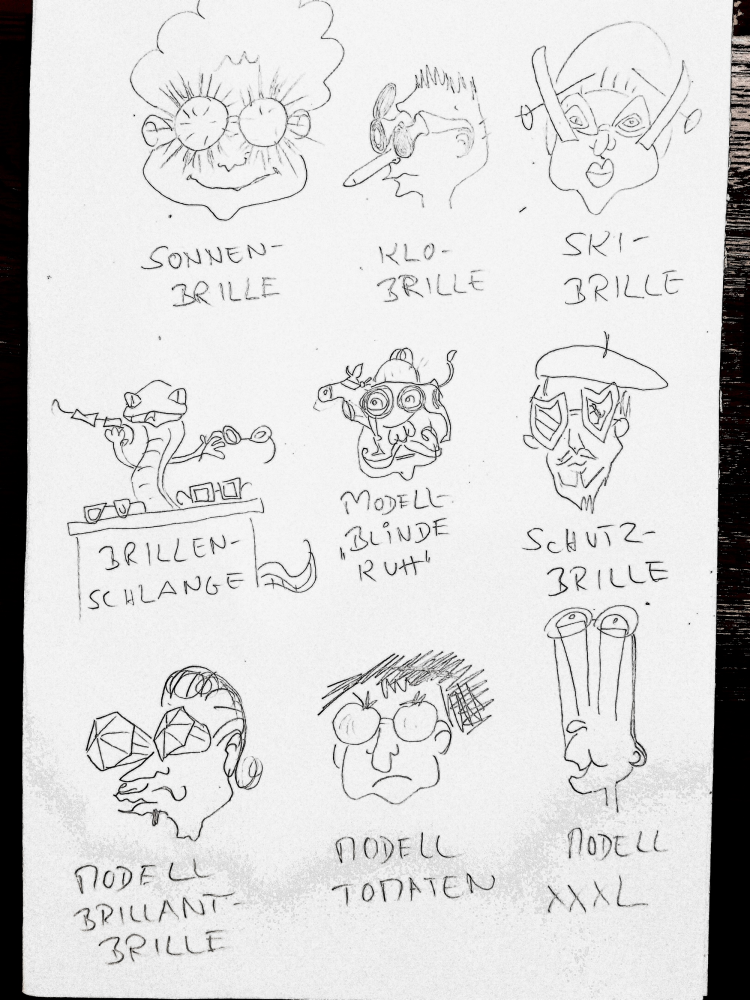 SONNEN-
BRILLE
KLO-
BRILLE
SKI-
BRILLE
BRILLEN-
SCHLANGE
MODELL
"BLINDE
KUH"
SCHUTZ-
BRILLE
MODELL
BRILLANT-
BRILLE
MODELL
TOMATEN
MODELL
XXXL